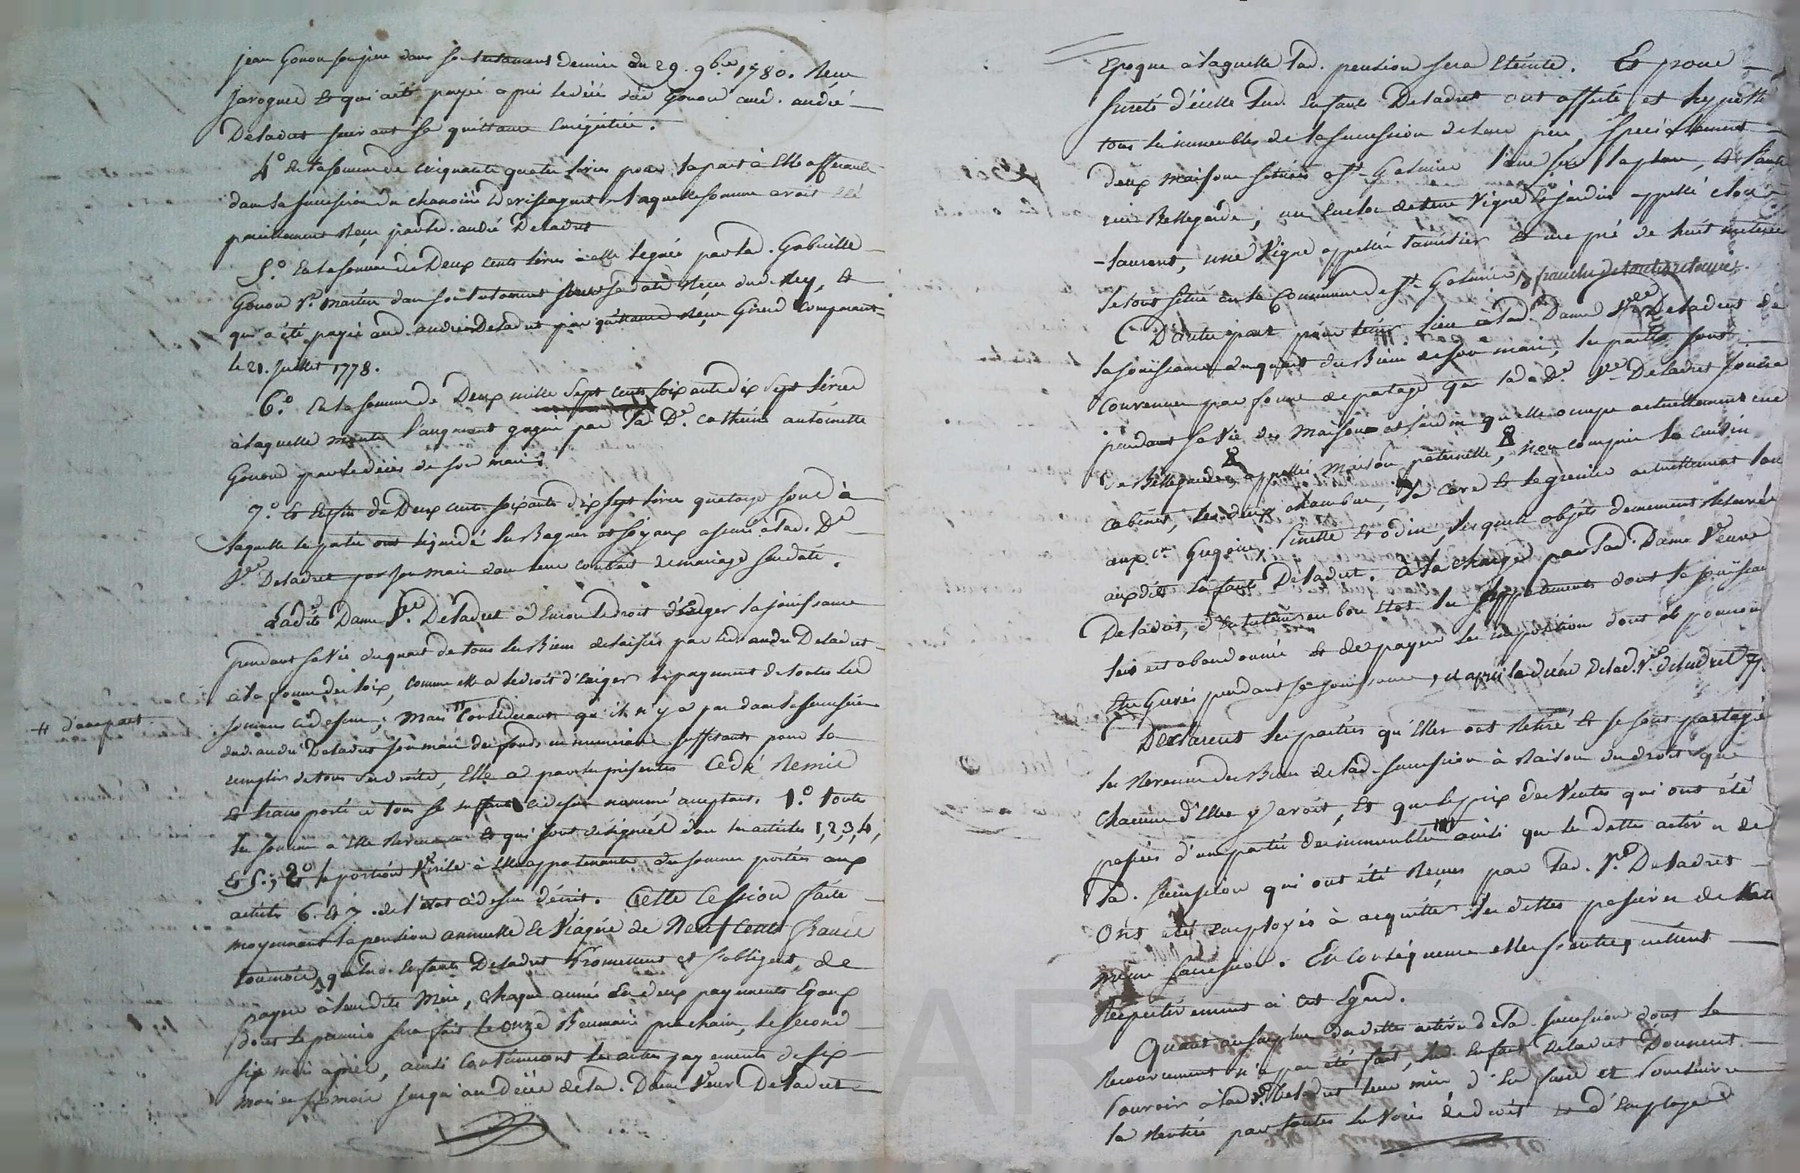 jean Gonon son pere dans son testament dernier du 29. 9bre 1780. Recu
jarognere et qui a été payé apres le décés dud Gonon aud. andré
Deladret suivant sa quittance enregistrée.
4° de la somme de cinquante quatre livres pour la part à elle afferante
dans la succession du chanoine laquelle somme avoit été
pareillement recu par led. andré Deladret
5.° Et la somme de Deux cents livres à elle leguée par lad. Gabrielle
Gonon Ve. martin dans son testament sous sa date Recu dud. Rey, et
qui a été payée aud. andré Deladret par quittance reçue Girerd comparant
le 21. Juillet 1778.
6.° Et la somme de Deux mille sept cents soixante dix sept livres
à laquelle monte l'augment gagné par lad. De. catherine antoinette
Gonon par le décès de son mari
7.° et enfin de Deux cents soixante dix sept livres quatorze sous à
laquelle les parties ont liquidé les Bagues et joyaux assurés à lad. De
Vve Deladret par son mari dans leur contrat de mariage susdaté.
Ladite Dame Ve. Deladret a Encore le droit d'Exiger la jouissance
pendant sa vie du quart de tous les Biens delaissés par led. andré Deladret
à la forme des loix, comme elle a le droit d'exiger le payement de toutes les
# d'une part.
sommes cidessus; Mais Considerant qu'il n'y a pas dans la succession
dud. andré Deladret son mari des fonds en numeraire suffisants pour la
remplir de tous ses droits, Elle a par les presentes Cedé Remis
et transporté à tous ses enfants cidessus nommés acceptans. 1.° toutes
les sommes à elle revenant et qui sont designées dans les articles 1, 2, 3, 4,
& 5.; 2° la portion virile à elle appartenante des sommes portées aux
articles 6. et 7. de l'état cidessus décrit. Cette Cession faite
moyennant la pension annuelle et viagére de Neuf cents francs
tournois, que lesd. Enfants Deladret Promettent et s'obligent de
payer à leur dite Mère, chaque année en deux payements Egaux
Dont le premier sera fait le onze Brumaire prochain, le second
six mois après, ainsi continuant les autres payements de six
mois en six mois jusqu'au décés de lad. Dame veuve Deladret
Epoque à laquelle lad. pension sera Eteinte. Et pour
sureté d'icelle lesd. Enfants Deladret ont affecté et hypothé
tous les immeubles de la succession de leur pere spécialement
deux maisons situées à St. Galmier l'une sur la place, et l'autre
rue Bellegarde; un Enclos de terre vigne et jardin appellé clos
-laurent, une Vigne appellée et une pré de huit meterées
le tout situé en la Commune de St. Galmier
D'autre part pour tenir lieu à lad. Dame Vve Deladret de
la jouissance du quart des Biens de son mari, les parties sont
convenues par forme de partage que lad. De. Vve Deladret jouira
pendant sa vie des Maison et jardin qu'elle occupe actuellement rue
de Bellegarde, appellée Maison paternelle, non compris la cuisine
cabinet, les deux chambres, la cave et le grenier actuellement loués
aux cns Gregoire, Pinelle et odin, lesquels objets demeurent reservés
auxdits Enfants Deladret. à la charge par lad. Dame Veuve
Deladret, d'entretenir en bon Etat les appartements dont la jouissance
lui est abandonnée et de payer les imposition dont ils pourroient
être Grevés pendant sa jouissance,
Declarent les parties qu'Elles ont Retiré et se sont partagé
les Revenus des Biens de lad. succession à Raison du droit que
chacune d'Elles y avoit, et que le prix des Ventes qui ont été
passées d'une partie des immeubles ainsi que les dettes actives de
lad. succession qui ont été reçues par lad. Ve. Deladret
Ont été employés à acquitter les dettes passives de la
même succession. En conséquence elles s'entrequittent
Respectivement à cet Egard.
Quant au surplus des dettes actives de lad. succession dont le
Recouvrement n'a pas été fait, lesd. Enfants Deladret Donnent
Pouvoir à lad. Ve. Deladret leur mere d'En faire et poursuivre
la Rentrée par toutes les Voies de droit et d'Employer